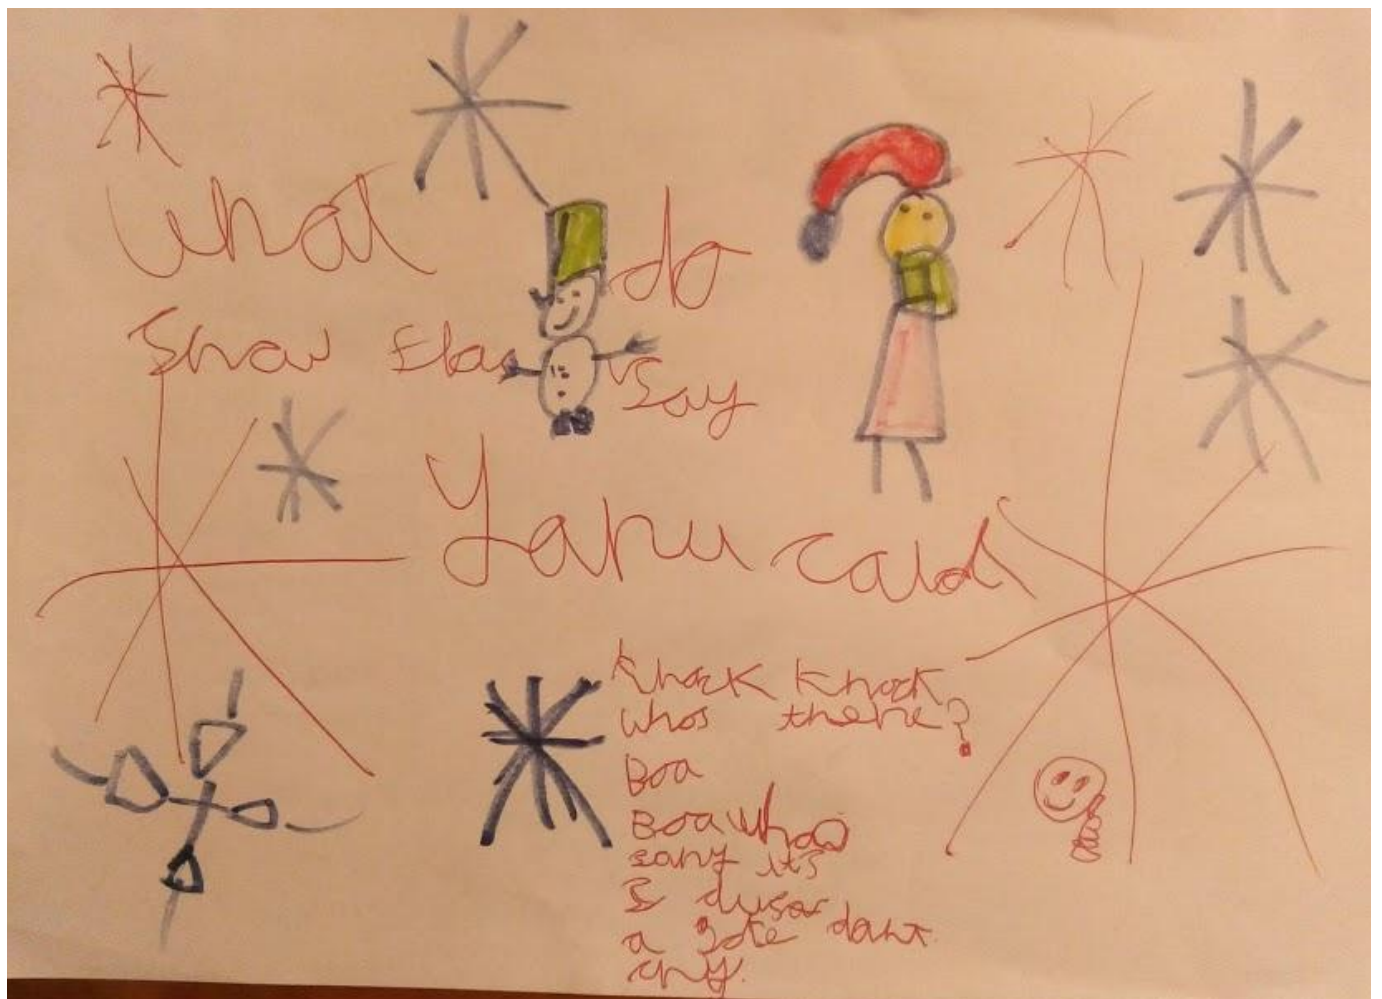 what do
Snow Flas Say
Yanu cald
Knock Knock
whos there?
Boa
Boa who
sany its
a Jote dant
cny.